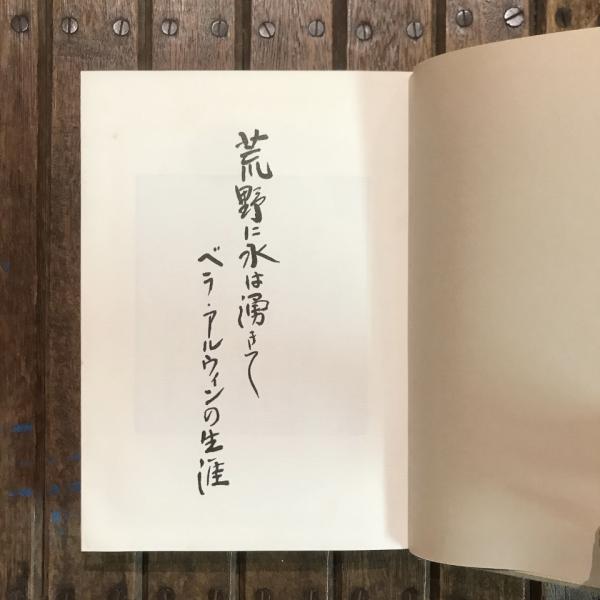 荒野に水は湧きて
ベラ・アルウィンの生涯